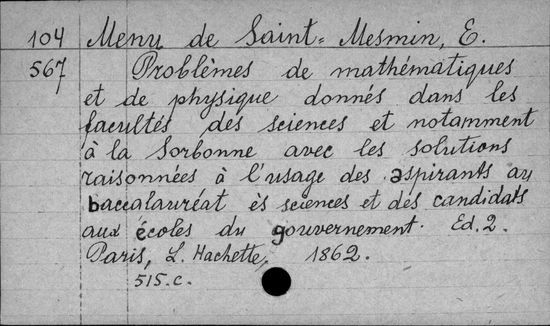 104 Menu de Saint-Mesmin, E.
567 Problèmes de mathématiques
et de physique donnés dans les
facultés des sciences et notamment
à la Sorbonne avec les solutions
raisonnées à l'usage des aspirants au
baccalauréat ès sciences et des candidats
aux écoles du gouvernement. Ed. 2.
Paris, L. Hachette, 1862.
515.c.